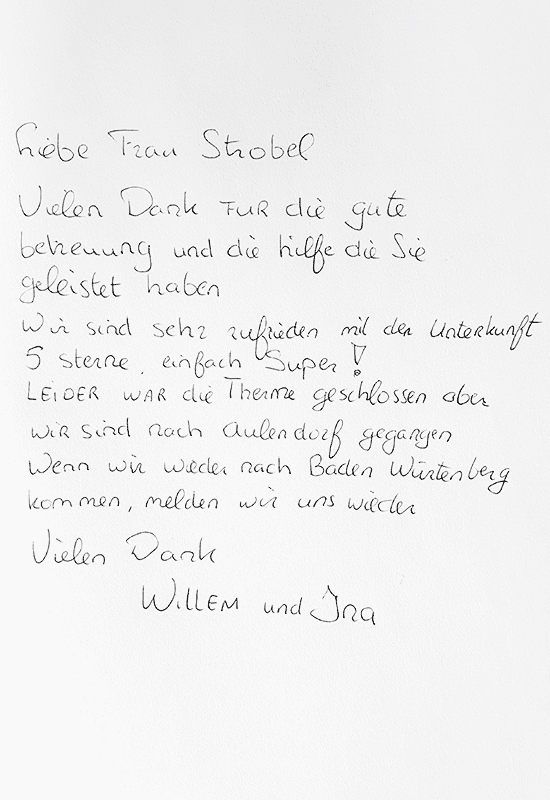 Liebe Frau Strobel
Vielen Dank FUR die gute
betreuung und die hilfe die Sie
geleistet haben
Wir sind sehr zufrieden mit der Unterkunft
5 sterne. einfach Super!
LEIDER WAR die Therme geschlossen aber
wir sind nach Aulendorf gegangen
Wenn wir wieder nach Baden Würtenberg
kommen, melden wir uns wieder
Vielen Dank
WILLEM und Ina